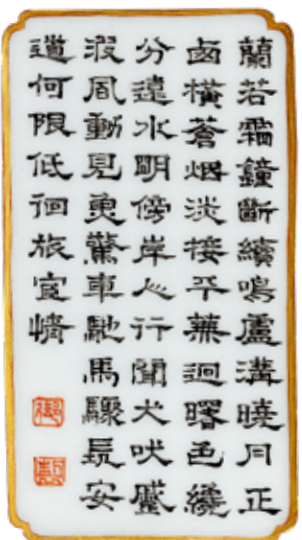 蘭若霜鐘斷續鳴盧溝曉月正
卥橫蒼烟淡接平蕪迥曙色纔
分遠水明傍岸人行聞犬吠蹙
波風動見魚驚車馳馬驟長安
道何限低徊旅宦情
御
製